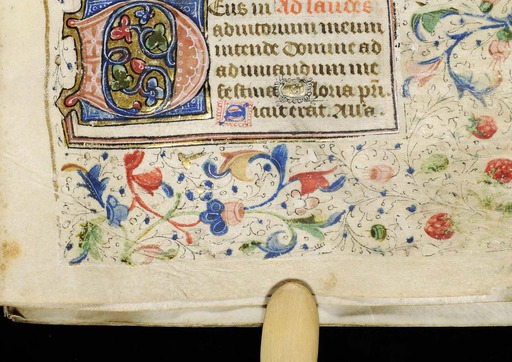 Deus in Ad laudes
adiutorium meum
intende Domine ad
adiuuandum me
festina Gloria pr̄i.
Sicut erat. Añā